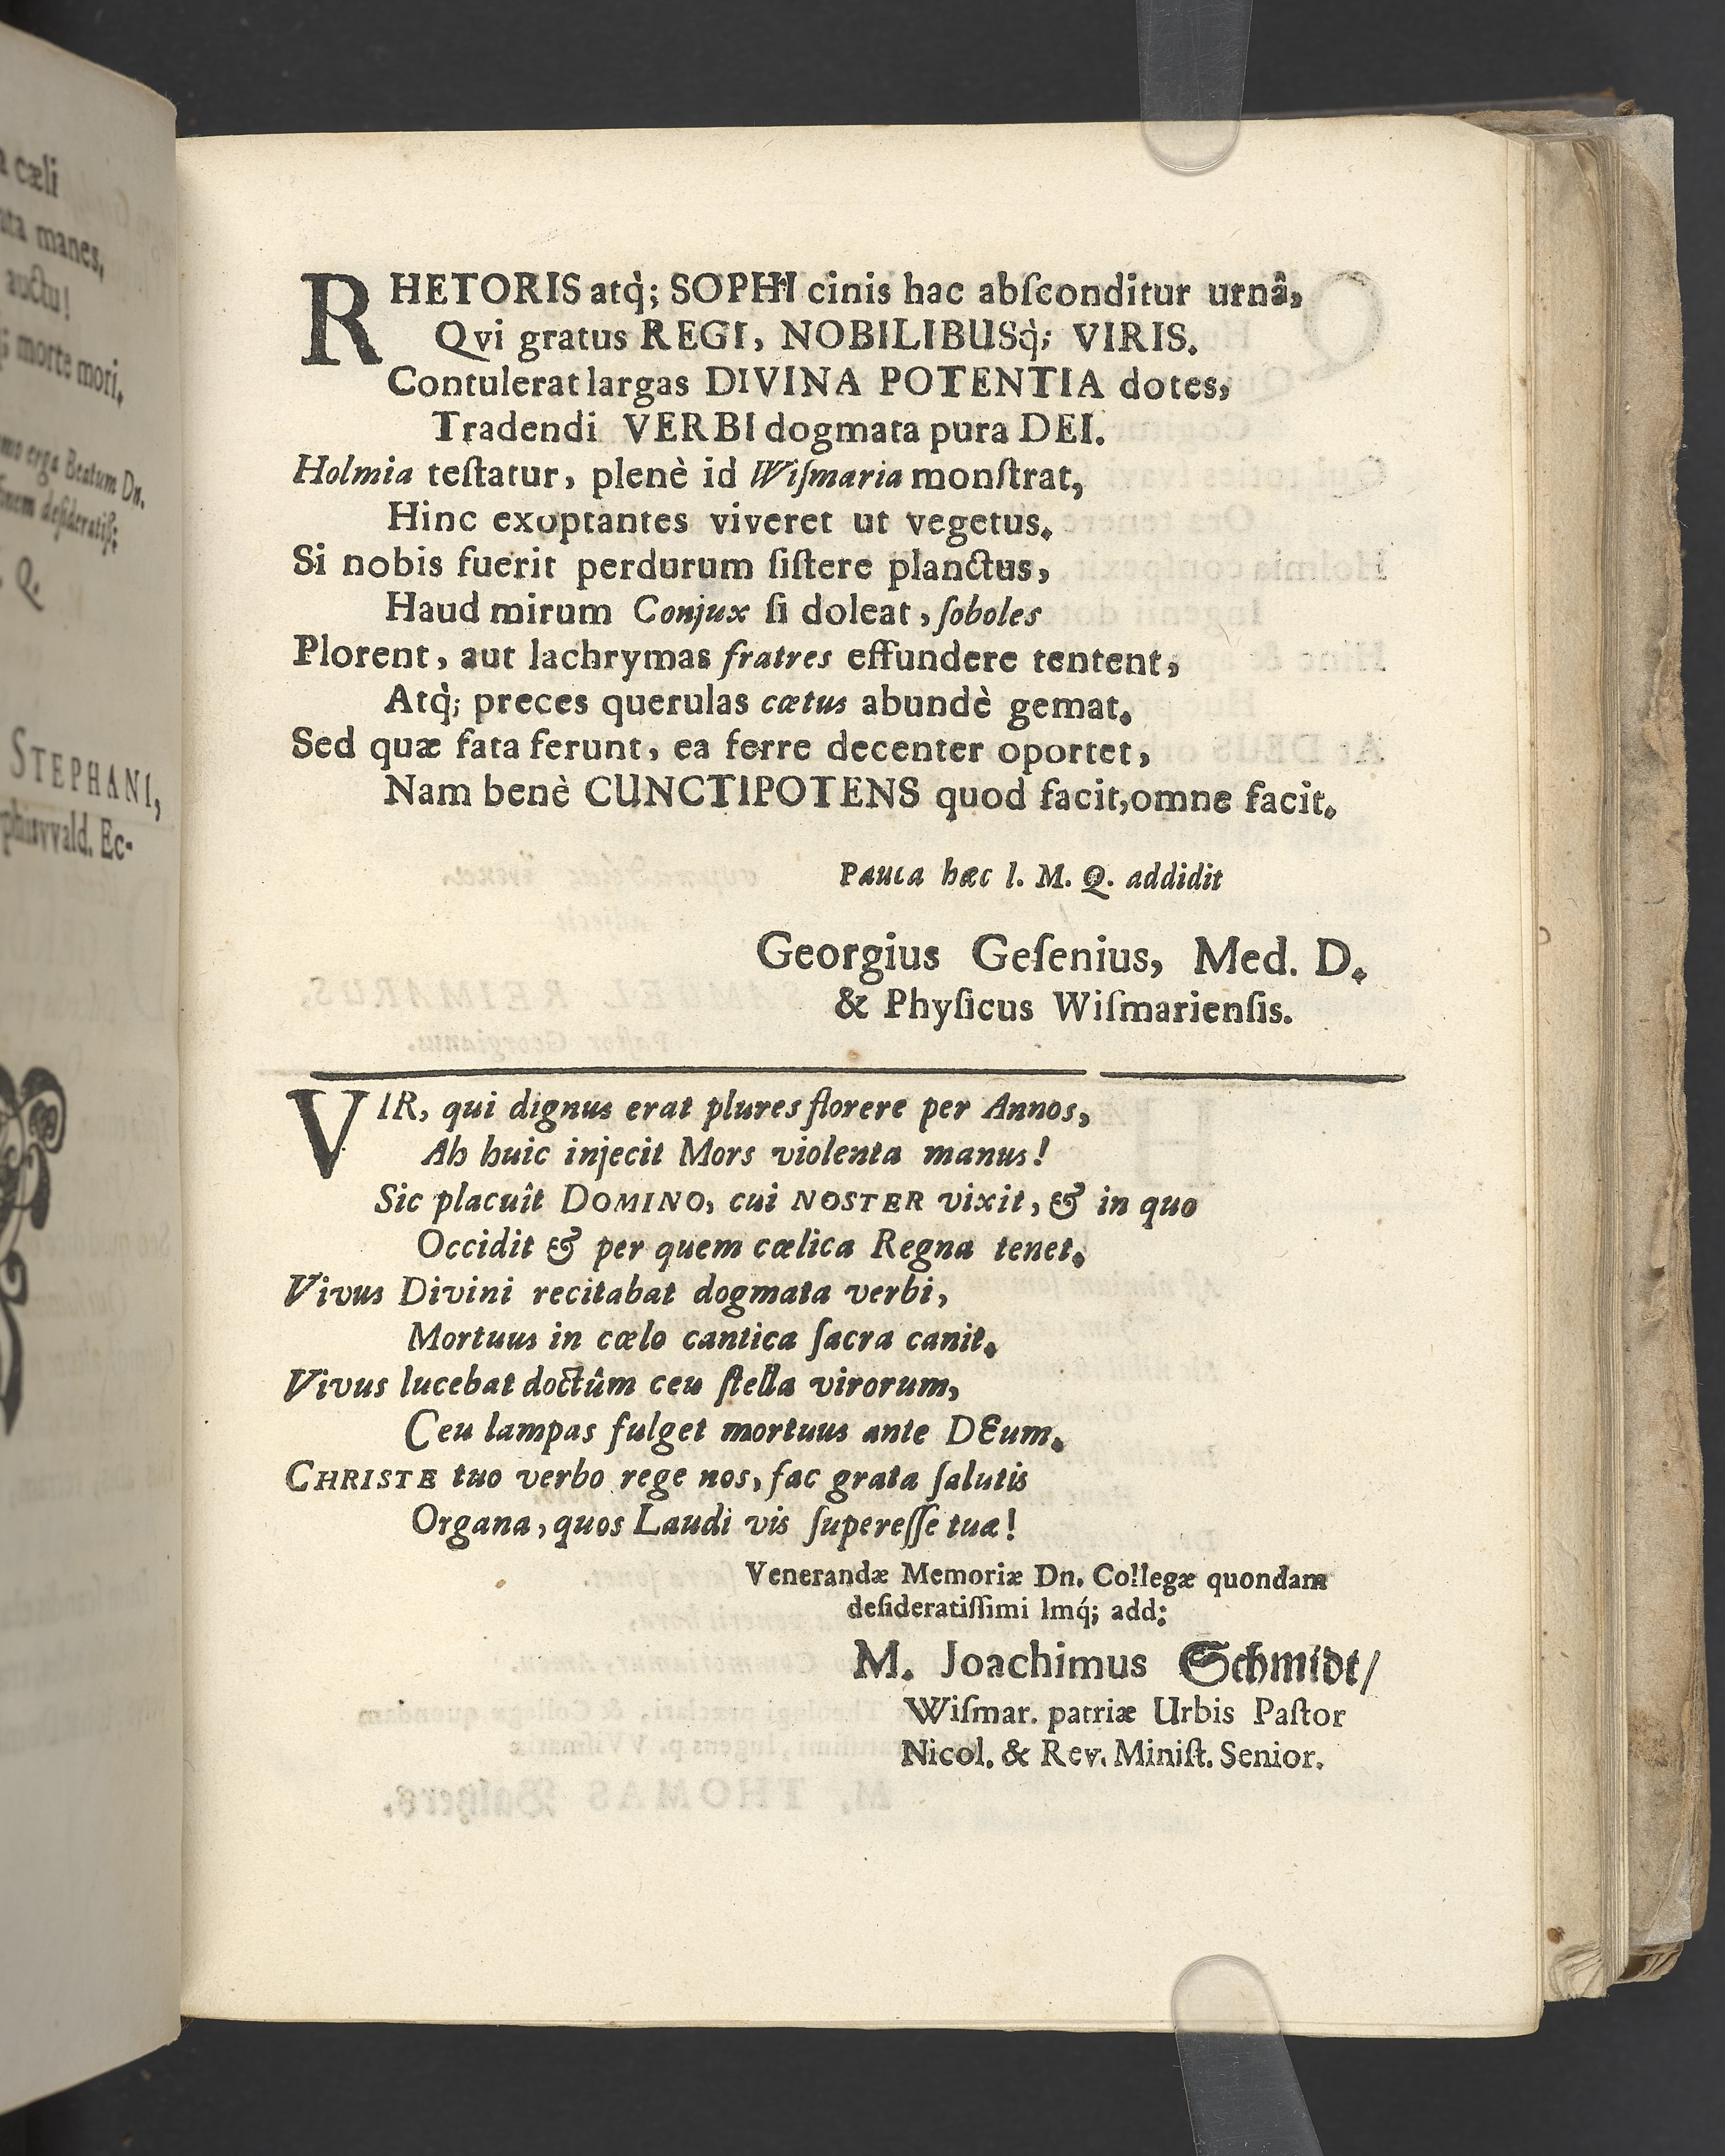 a cæli
manes,
auctu!
morte mori,
erga Beatum Dn.
Q.
STEPHANI,
vvald. Ec-
RHETORIS atq̀; SOPHI cinis hac abſconditur urnâ,
Qvi gratus REGI, NOBILIBUSq̀; VIRIS.
Contulerat largas DIVINA POTENTIA dotes,
Tradendi VERBI dogmata pura DEI.
Holmia teſtatur, plenè id Wiſmaria monſtrat,
Hinc exoptantes viveret ut vegetus.
Si nobis fuerit perdurum ſiſtere planctus,
Haud mirum Conjux ſi doleat, ſoboles
Plorent, aut lachrymas fratres effundere tentent,
Atq̀; preces querulas cætus abundè gemat.
Sed quæ fata ferunt, ea ferre decenter oportet,
Nam benè CUNCTIPOTENS quod facit, omne facit.
Pauca hæc l. M. Q. addidit
Georgius Geſenius, Med. D.
& Phyſicus Wiſmarienſis.
VIR, qui dignus erat plures florere per Annos,
Ah huic injecit Mors violenta manus!
Sic placuit DOMINO, cui NOSTER vixit, & in quo
Occidit & per quem cælica Regna tenet.
Vivus Divini recitabat dogmata verbi,
Mortuus in cælo cantica ſacra canit.
Vivus lucebat doctûm ceu ſtella virorum,
Ceu lampas fulget mortuus ante DEum.
CHRISTE tuo verbo rege nos, fac grata ſalutis
Organa, quos Laudi vis ſupereſſe tuæ!
Venerandæ Memoriæ Dn. Collegæ quondam
deſideratiſſimi lmq́; add:
M. Joachimus Schmidt/
Wiſmar. patriæ Urbis Paſtor
Nicol. & Rev. Miniſt. Senior.